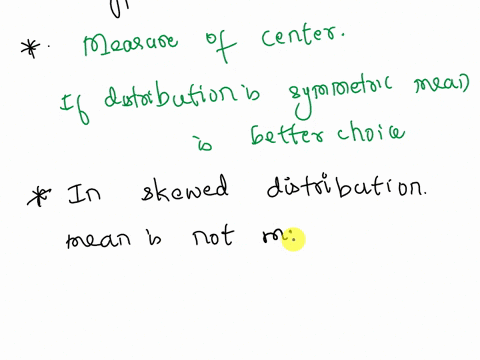 * Measure of center.
If distribution is symmetric mean
is better choice
* In skewed distribution.
mean is not